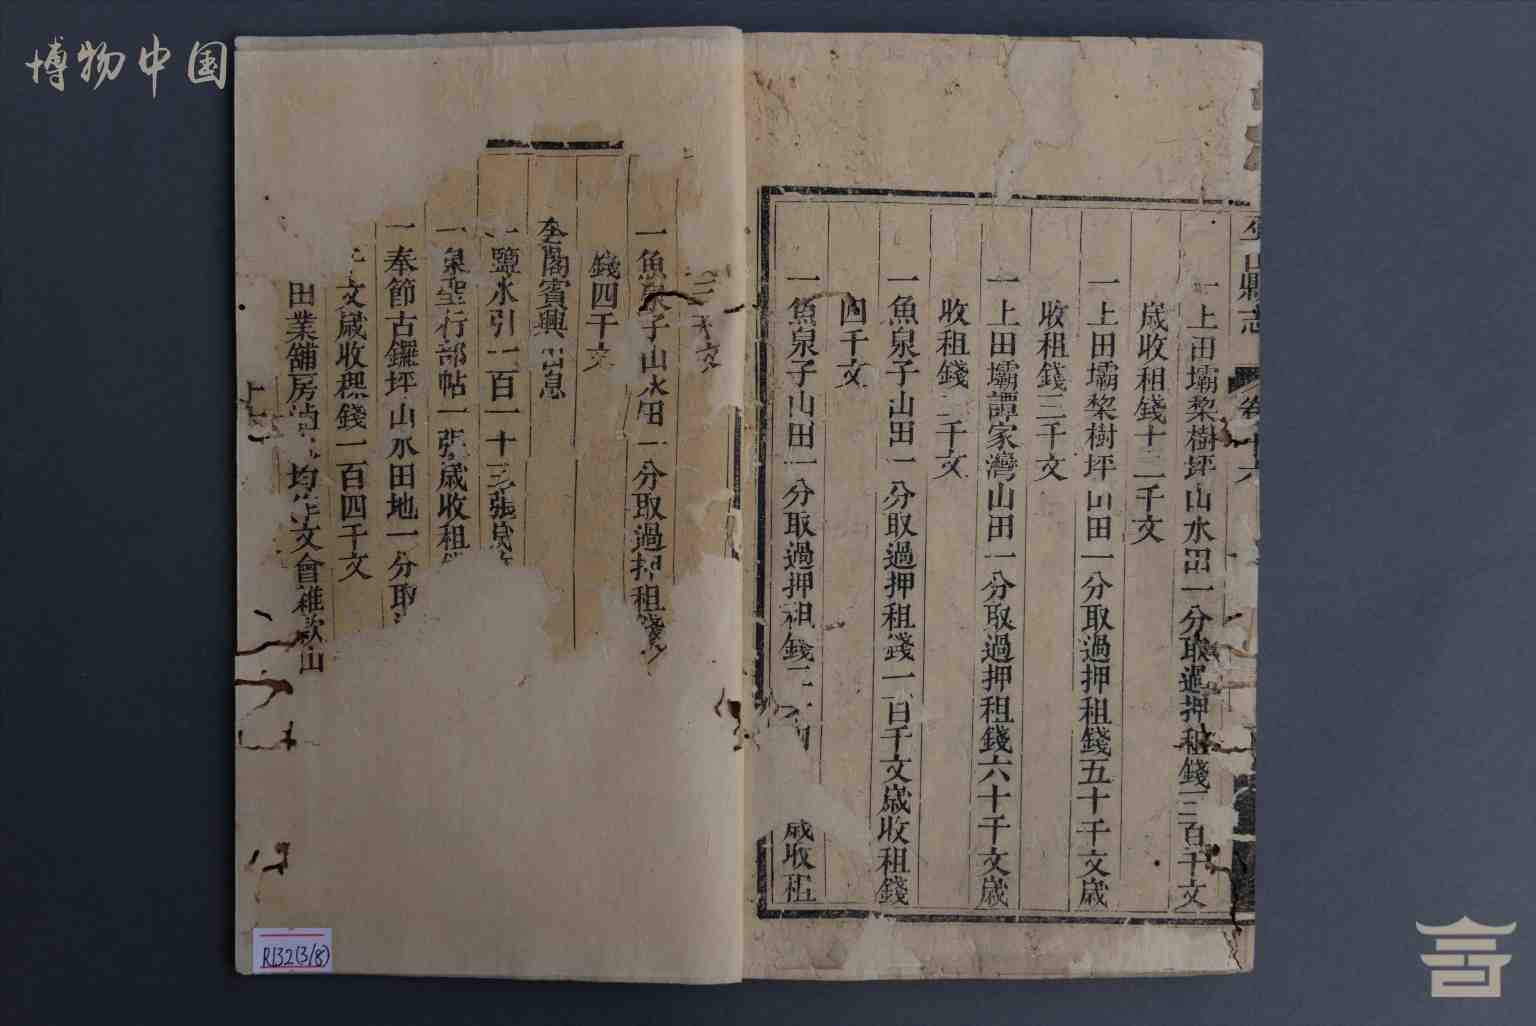 博物中国
山縣志
卷十六
一上田壩棃樹坪山水田一分取過押租錢三百千文
歲收租錢十二千文
一上田壩棃樹坪山田一分取過押租錢五十千文歲
收租錢三千文
一上田壩譚家灣山田一分取過押租錢六十千文歲
收租錢二千文
一魚泉子山田一分取過押租錢一百千文歲收租錢
四千文
一魚泉子山田一分取過押租錢
歲收租
文
一魚泉子山水田一分取過押租錢
錢四千文
奎閣賓興出息
一鹽水引二百一十三張歲
聖行部帖一張歲收租
一奉節古鑼坪山水田地一分取
文歲收稞錢一百四千文
田業舖房
均作文會雜款山
R132(3/8)